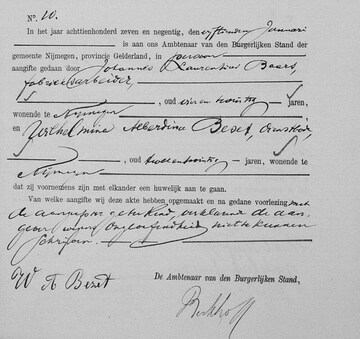 N°. 10.
In het jaar achttienhonderd zeven en negentig, den elfden Januari
is aan ons Ambtenaar van den Burgerlijken Stand der
gemeente Nijmegen, provincie Gelderland, in persoon
aangifte gedaan door Johannes Laurentius Baert,
fabrieksarbeider,
, oud een en twintig jaren,
wonende te Nijmegen
en Wilhelmina Alberdina Bezet, dienstbode,
, oud twee en twintig jaren, wonende te
Nijmegen
dat zij voornemens zijn met elkander een huwelijk aan te gaan.
Van welke aangifte wij deze akte hebben opgemaakt en na gedane voorlezing met
de aangeefster geteekend, verklarende de aan-
gever wegens ongeoefendheid niet te kunnen
schrijven.
W A Bezet
De Ambtenaar van den Burgerlijken Stand,